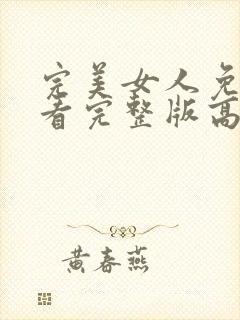 完美女人免
看完整版高
黄春燕